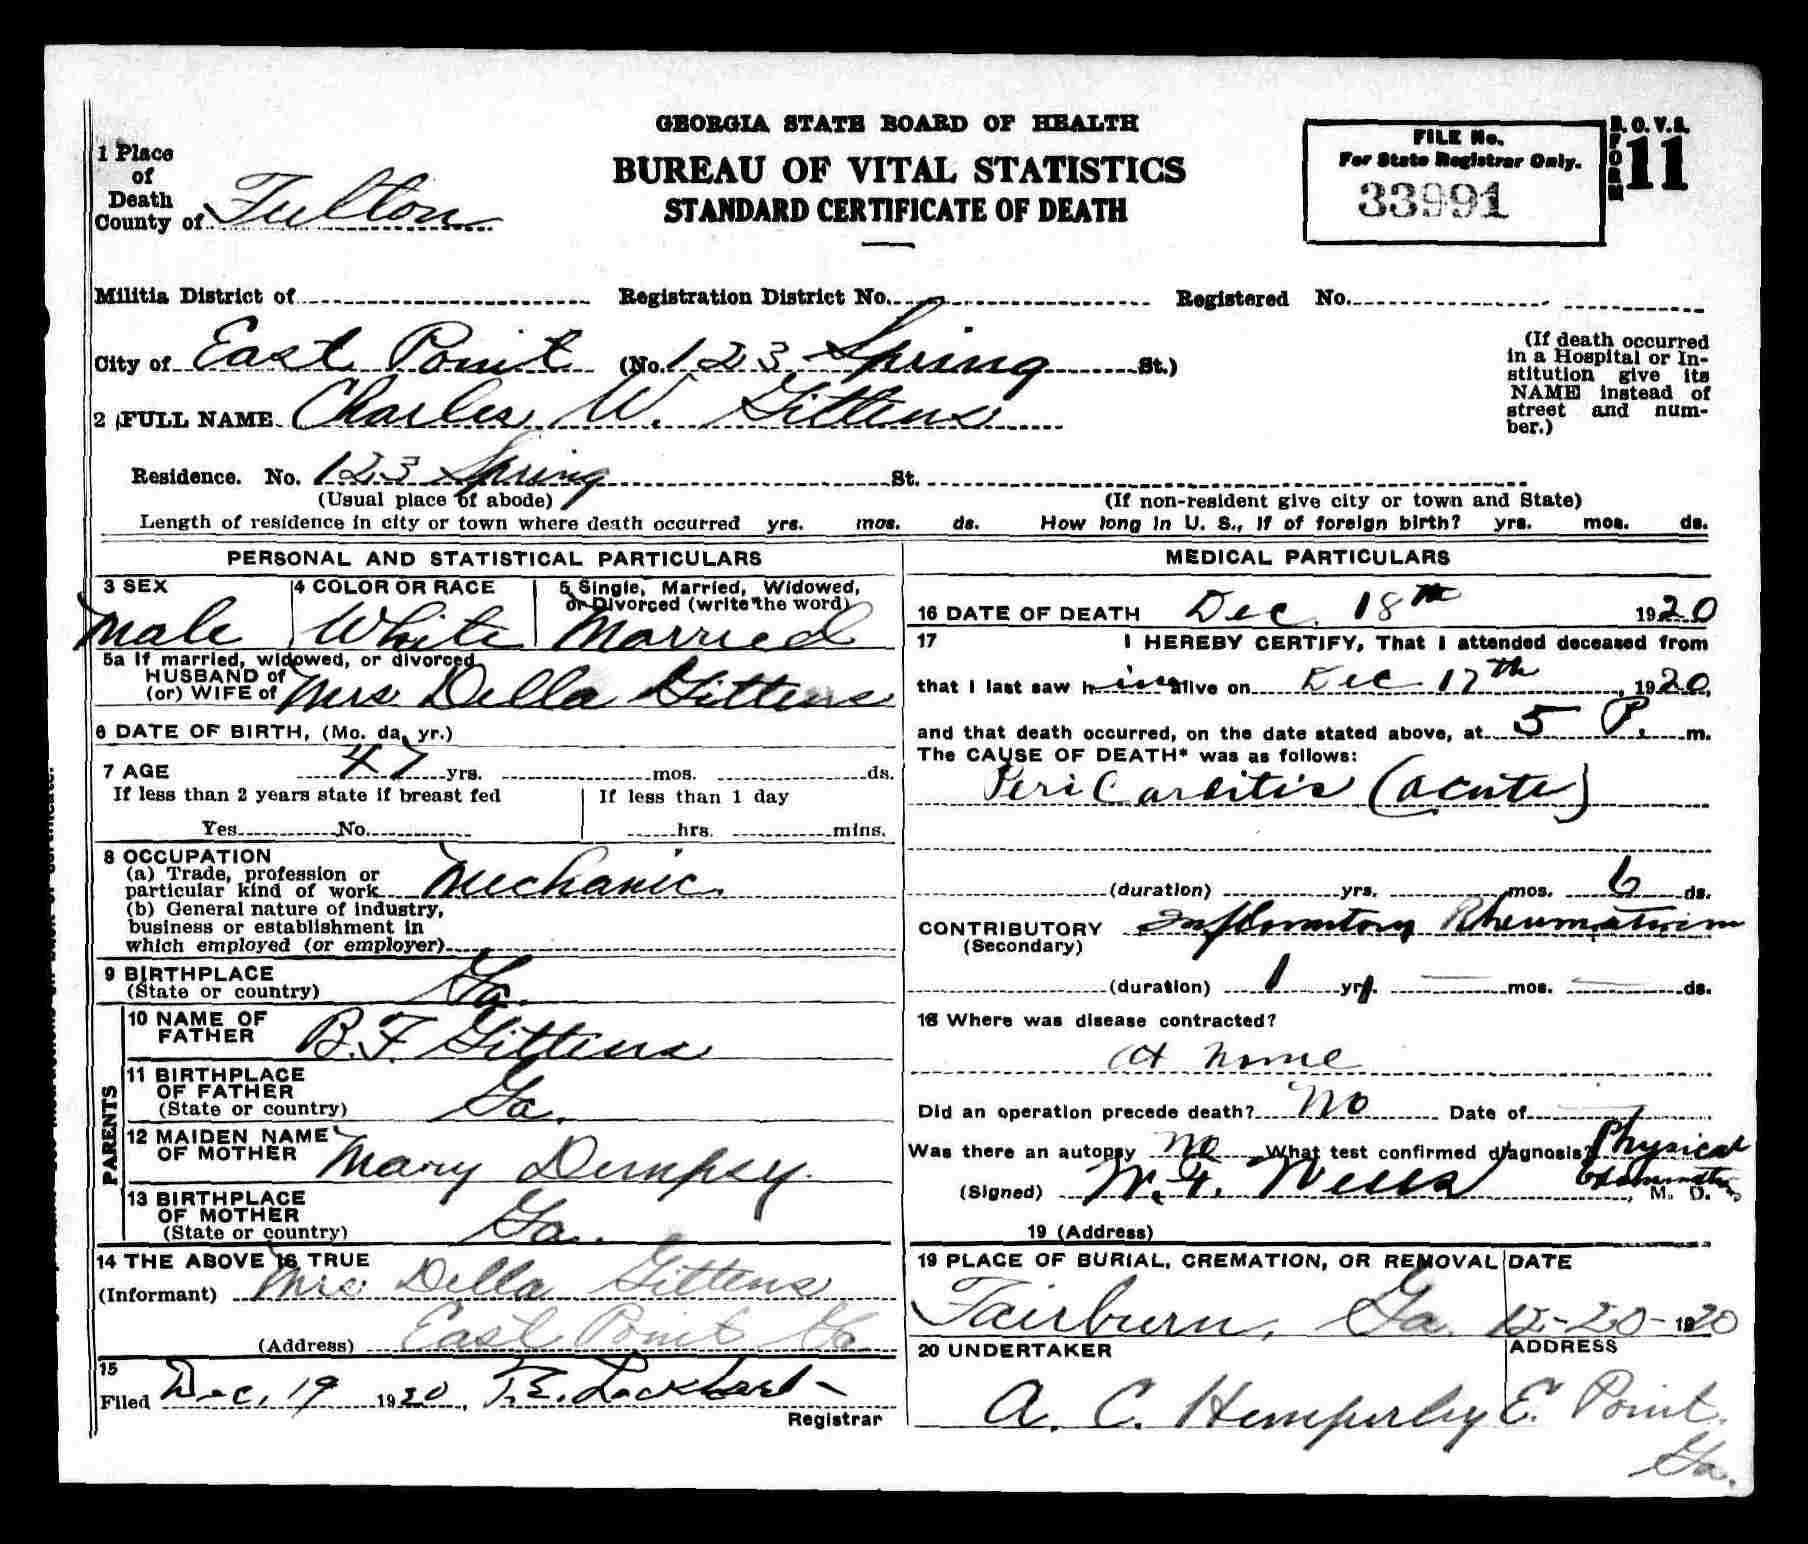 GEORGIA STATE BOARD OF HEALTH
BUREAU OF VITAL STATISTICS
STANDARD CERTIFICATE OF DEATH
FILE No.
For State Registrar Only.
33991
B. O. V. S.
FORM 11
1 Place of Death
County of Fulton
Militia District of Registration District No. Registered No.
City of East Point (No. 123 Spring St.)
(If death occurred in a Hospital or Institution give its NAME instead of street and number.)
2 FULL NAME Charles W. Gittens
Residence. No. 123 Spring St.
(Usual place of abode) (If non-resident give city or town and State)
Length of residence in city or town where death occurred yrs. mos. ds. How long in U. S., if of foreign birth? yrs. mos. ds.
PERSONAL AND STATISTICAL PARTICULARS
3 SEX Male
4 COLOR OR RACE White
5 Single, Married, Widowed, or Divorced (write the word) Married
5a If married, widowed, or divorced
HUSBAND of
(or) WIFE of Mrs Della Gittens
6 DATE OF BIRTH, (Mo. da, yr.)
7 AGE 47 yrs. mos. ds.
If less than 2 years state if breast fed
Yes No.
If less than 1 day
hrs. mins.
8 OCCUPATION
(a) Trade, profession or
particular kind of work Mechanic
(b) General nature of industry,
business or establishment in
which employed (or employer)
9 BIRTHPLACE
(State or country) Ga.
PARENTS
10 NAME OF FATHER B. F. Gittens
11 BIRTHPLACE OF FATHER
(State or country) Ga.
12 MAIDEN NAME OF MOTHER Mary Dempsy
13 BIRTHPLACE OF MOTHER
(State or country) Ga.
14 THE ABOVE IS TRUE
(Informant) Mrs Della Gittens
(Address) East Point Ga
15
Filed Dec. 19 1920, T. E. Lockhart
Registrar
MEDICAL PARTICULARS
16 DATE OF DEATH Dec. 18th 1920
17 I HEREBY CERTIFY, That I attended deceased from
that I last saw him alive on Dec 17th, 1920,
and that death occurred, on the date stated above, at 5 P. m.
The CAUSE OF DEATH* was as follows:
Peri Carditis (acute)
(duration) yrs. mos. 6 ds.
CONTRIBUTORY Inflamatory Rheumatism
(Secondary)
(duration) 1 yrs. mos. ds.
18 Where was disease contracted?
At home
Did an operation precede death? No Date of
Was there an autopsy No What test confirmed diagnosis? Physical Examination
(Signed) W. F. Wells, M. D.
19 (Address)
19 PLACE OF BURIAL, CREMATION, OR REMOVAL DATE
Fairburn, Ga. 12-20-1920
20 UNDERTAKER ADDRESS
A. C. Hemperley E. Point.
Ga.